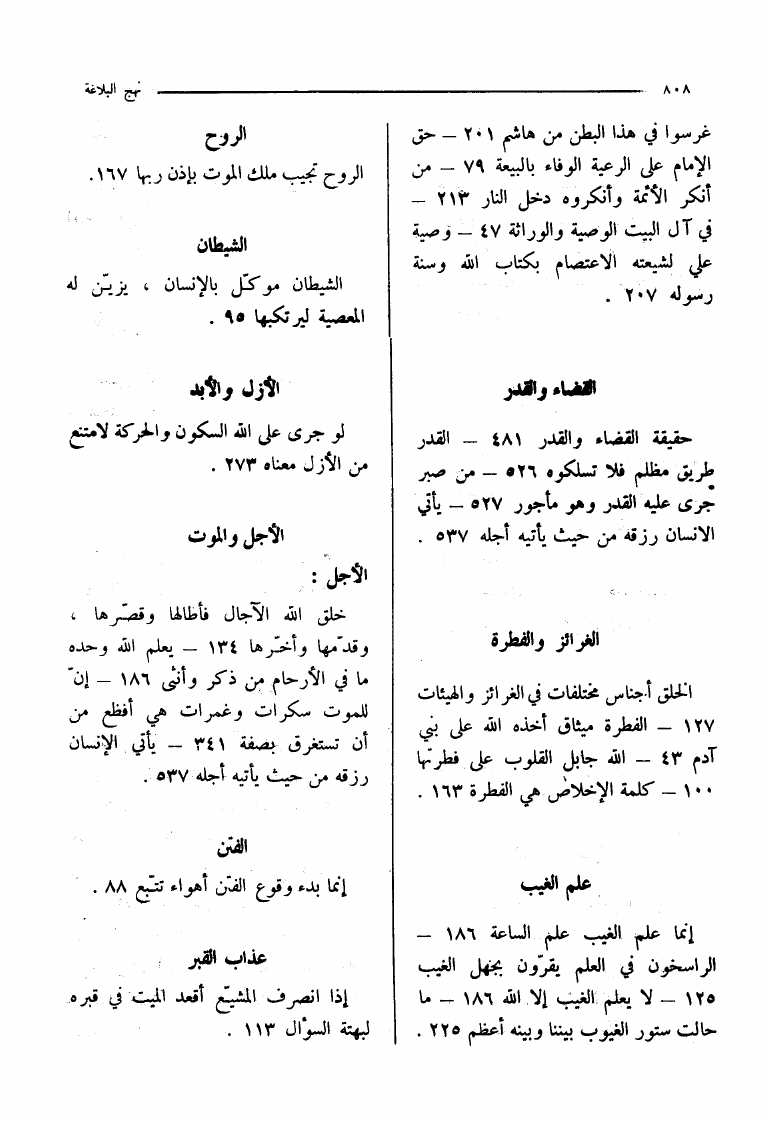 ٨٠٨ نهج البلاغة
غرسوا في هذا البطن من هاشم ٢٠١ – حق
الإمام على الرعية الوفاء بالبيعة ٧٩ – من
أنكر الأئمة وأنكروه دخل النار ٢١٣ –
في آل البيت الوصية والوراثة ٤٧ – وصية
علي لشيعته الاعتصام بكتاب الله وسنة
رسوله ٢٠٧ .
القضاء والقدر
حقيقة القضاء والقدر ٤٨١ – القدر
طريق مظلم فلا تسلكوه ٥٢٦ – من صبر
جرى عليه القدر وهو مأجور ٥٢٧ – يأتي
الانسان رزقه من حيث يأتيه أجله ٥٣٧ .
الغرائز والفطرة
الخلق أجناس مختلفات في الغرائز والهيئات
١٢٧ – الفطرة ميثاق أخذه الله على بني
آدم ٤٣ – الله جابل القلوب على فطرتها
١٠٠ – كلمة الإخلاص هي الفطرة ١٦٣ .
علم الغيب
إنما علم الغيب علم الساعة ١٨٦ –
الراسخون في العلم يقرّون بجهل الغيب
١٢٥ – لا يعلم الغيب إلا الله ١٨٦ – ما
حالت ستور الغيوب بيننا وبينه أعظم ٢٢٥ .
الروح
الروح تجيب ملك الموت بإذن ربها ١٦٧ .
الشيطان
الشيطان موكّل بالإنسان ، يزيّن له
المعصية ليرتكبها ٩٥ .
الأزل والأبد
لو جرى على الله السكون والحركة لامتنع
من الأزل معناه ٢٧٣ .
الأجل والموت
الأجل :
خلق الله الآجال فأطالها وقصّرها ،
وقدّمها وأخّرها ١٣٤ – يعلم الله وحده
ما في الأرحام من ذكر وأنثى ١٨٦ – إنّ
للموت سكرات وغمرات هي أفظع من
أن تستغرق بصفة ٣٤١ – يأتي الإنسان
رزقه من حيث يأتيه أجله ٥٣٧ .
الفتن
إنما بدء وقوع الفتن أهواء تتّبع ٨٨ .
عذاب القبر
إذا انصرف المشيّع أقعد الميت في قبره
لبهتة السؤال ١١٣ .